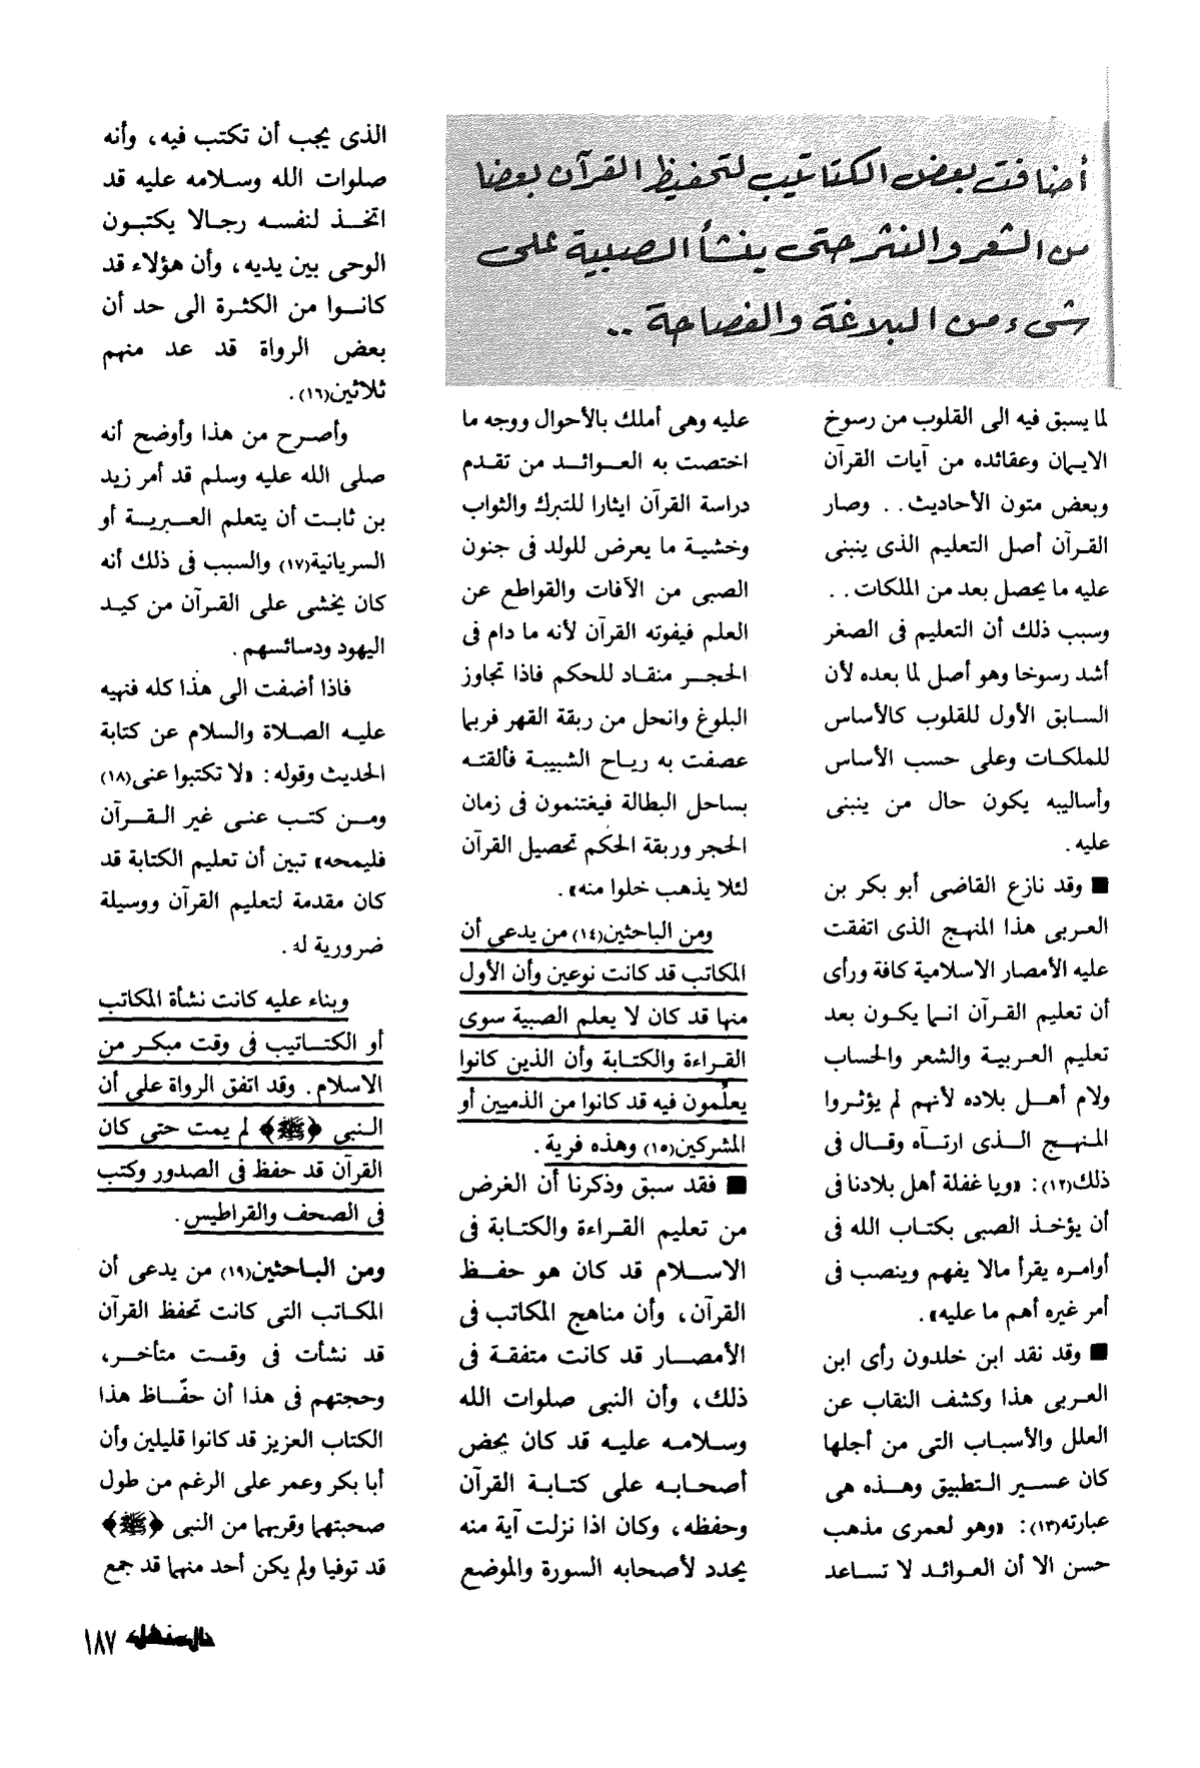 أضافت بعض الكتاتيب لتحفيظ القرآن بعضا
من الشعر والنثر حتى ينشأ الصبية على
شىء من البلاغة والفصاحة ..
لما يسبق فيه الى القلوب من رسوخ
الايمان وعقائده من آيات القرآن
وبعض متون الأحاديث . . وصار
القرآن أصل التعليم الذى ينبنى
عليه ما يحصل بعد من الملكات . .
وسبب ذلك أن التعليم فى الصغر
أشد رسوخا وهو أصل لما بعده لأن
السابق الأول للقلوب كالأساس
للملكات وعلى حسب الأساس
وأساليبه يكون حال من ينبنى
عليه .
■ وقد نازع القاضى أبو بكر بن
العربى هذا المنهج الذى اتفقت
عليه الأمصار الاسلامية كافة ورأى
أن تعليم القرآن انما يكون بعد
تعليم العربية والشعر والحساب
ولام أهل بلاده لأنهم لم يؤثروا
المنهج الذى ارتآه وقال فى
ذلك(١٢): «ويا غفلة أهل بلادنا فى
أن يؤخذ الصبى بكتاب الله فى
أوامره يقرأ مالا يفهم وينصب فى
أمر غيره أهم ما عليه».
■ وقد نقد ابن خلدون رأى ابن
العربى هذا وكشف النقاب عن
العلل والأسباب التى من أجلها
كان عسير التطبيق وهذه هى
عبارته(١٣): «وهو لعمرى مذهب
حسن الا أن العوائد لا تساعد
عليه وهى أملك بالأحوال ووجه ما
اختصت به العوائد من تقدم
دراسة القرآن ايثارا للتبرك والثواب
وخشية ما يعرض للولد فى جنون
الصبى من الآفات والقواطع عن
العلم فيفوته القرآن لأنه ما دام فى
الحجر منقاد للحكم فاذا تجاوز
البلوغ وانحل من ربقة القهر فربما
عصفت به رياح الشبيبة فألقته
بساحل البطالة فيغتنمون فى زمان
الحجر وربقة الحكم تحصيل القرآن
لئلا يذهب خلوا منه».
ومن الباحثين(١٤) من يدعى أن
المكاتب قد كانت نوعين وأن الأول
منها قد كان لا يعلم الصبية سوى
القراءة والكتابة وأن الذين كانوا
يعلّمون فيه قد كانوا من الذميين أو
المشركين(١٥) وهذه فرية .
■ فقد سبق وذكرنا أن الغرض
من تعليم القراءة والكتابة فى
الاسلام قد كان هو حفظ
القرآن، وأن مناهج المكاتب فى
الأمصار قد كانت متفقة فى
ذلك، وأن النبى صلوات الله
وسلامه عليه قد كان يحض
أصحابه على كتابة القرآن
وحفظه، وكان اذا نزلت آية منه
يحدد لأصحابه السورة والموضع
الذى يجب أن تكتب فيه، وأنه
صلوات الله وسلامه عليه قد
اتخذ لنفسه رجالا يكتبون
الوحى بين يديه، وأن هؤلاء قد
كانوا من الكثرة الى حد أن
بعض الرواة قد عد منهم
ثلاثين(١٦).
وأصرح من هذا وأوضح أنه
صلى الله عليه وسلم قد أمر زيد
بن ثابت أن يتعلم العبرية أو
السريانية(١٧) والسبب فى ذلك أنه
كان يخشى على القرآن من كيد
اليهود ودسائسهم .
فاذا أضفت الى هذا كله فنهيه
عليه الصلاة والسلام عن كتابة
الحديث وقوله : «لا تكتبوا عنى(١٨)
ومن كتب عنى غير القرآن
فليمحه» تبين أن تعليم الكتابة قد
كان مقدمة لتعليم القرآن ووسيلة
ضرورية له .
وبناء عليه كانت نشأة المكاتب
أو الكتاتيب فى وقت مبكر من
الاسلام . وقد اتفق الرواة على أن
النبى ﴿ﷺ﴾ لم يمت حتى كان
القرآن قد حفظ فى الصدور وكتب
فى الصحف والقراطيس .
ومن الباحثين(١٩) من يدعى أن
المكاتب التى كانت تحفظ القرآن
قد نشأت فى وقت متأخر،
وحجتهم فى هذا أن حفّاظ هذا
الكتاب العزيز قد كانوا قليلين وأن
أبا بكر وعمر على الرغم من طول
صحبتهما وقربهما من النبى ﴿ﷺ﴾
قد توفيا ولم يكن أحد منهما قد جمع
١٨٧